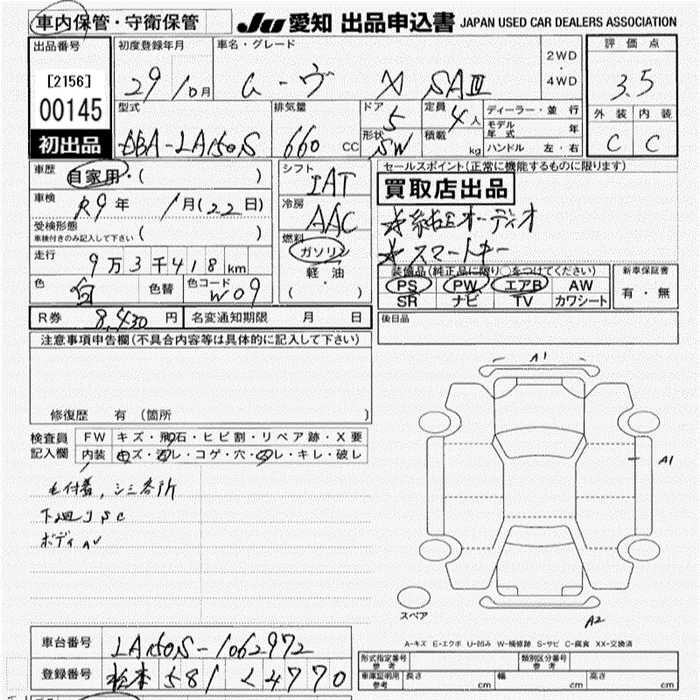 車内保管・守衛保管 JU 愛知 出品申込書 JAPAN USED CAR DEALERS ASSOCIATION
出品番号 初度登録年月 車名・グレード 2WD 4WD 評価点
[2156] 29年10月 ムーヴ X SAⅢ 3.5
00145 型式 排気量 ドア 5 定員 4人 ディーラー・並行 外装 内装
初出品 DBA-LA150S 660 CC 形状 SW 積載 kg モデル年式 年 ハンドル 左・右 C C
車歴 自家用・( ) シフト IAT セールスポイント(正常に機能するものに限ります)
車検 R9年 1月(22日) 冷房 AAC 買取店出品
受検形態 車検付きのみ記入して下さい ( ) 燃料 ☆純正オーディオ
走行 9万3千418km ガソリン ☆スマートキー
色 白 色替 色コード W09 軽油 ( ・ ) 装備品(純正品に限り○をつけてください) 新車保証書
PS PW エアB AW 有・無
SR ナビ TV カワシート
R券 8,430円 名変通知期限 月 日 後日品
注意事項申告欄(不具合内容等は具体的に記入して下さい)
修復歴 有 (箇所 )
検査員記入欄 FW キズ・飛石・ヒビ割・リペア跡・X要
内装 キズ・汚レ・コゲ・穴・スレ・キレ・破レ
毛付着、シミ各所
下廻りSC
ボディAV
A1
A1
A2
スペア
A-キズ E-エクボ U-凹み W-補修跡 S-サビ C-腐食 XX-交換済
車台番号 LA150S-1062972
登録番号 581 く 4770
形式指定番号 参考 類別区分番号 参考
車庫証明用 参考 長さ 幅 高さ